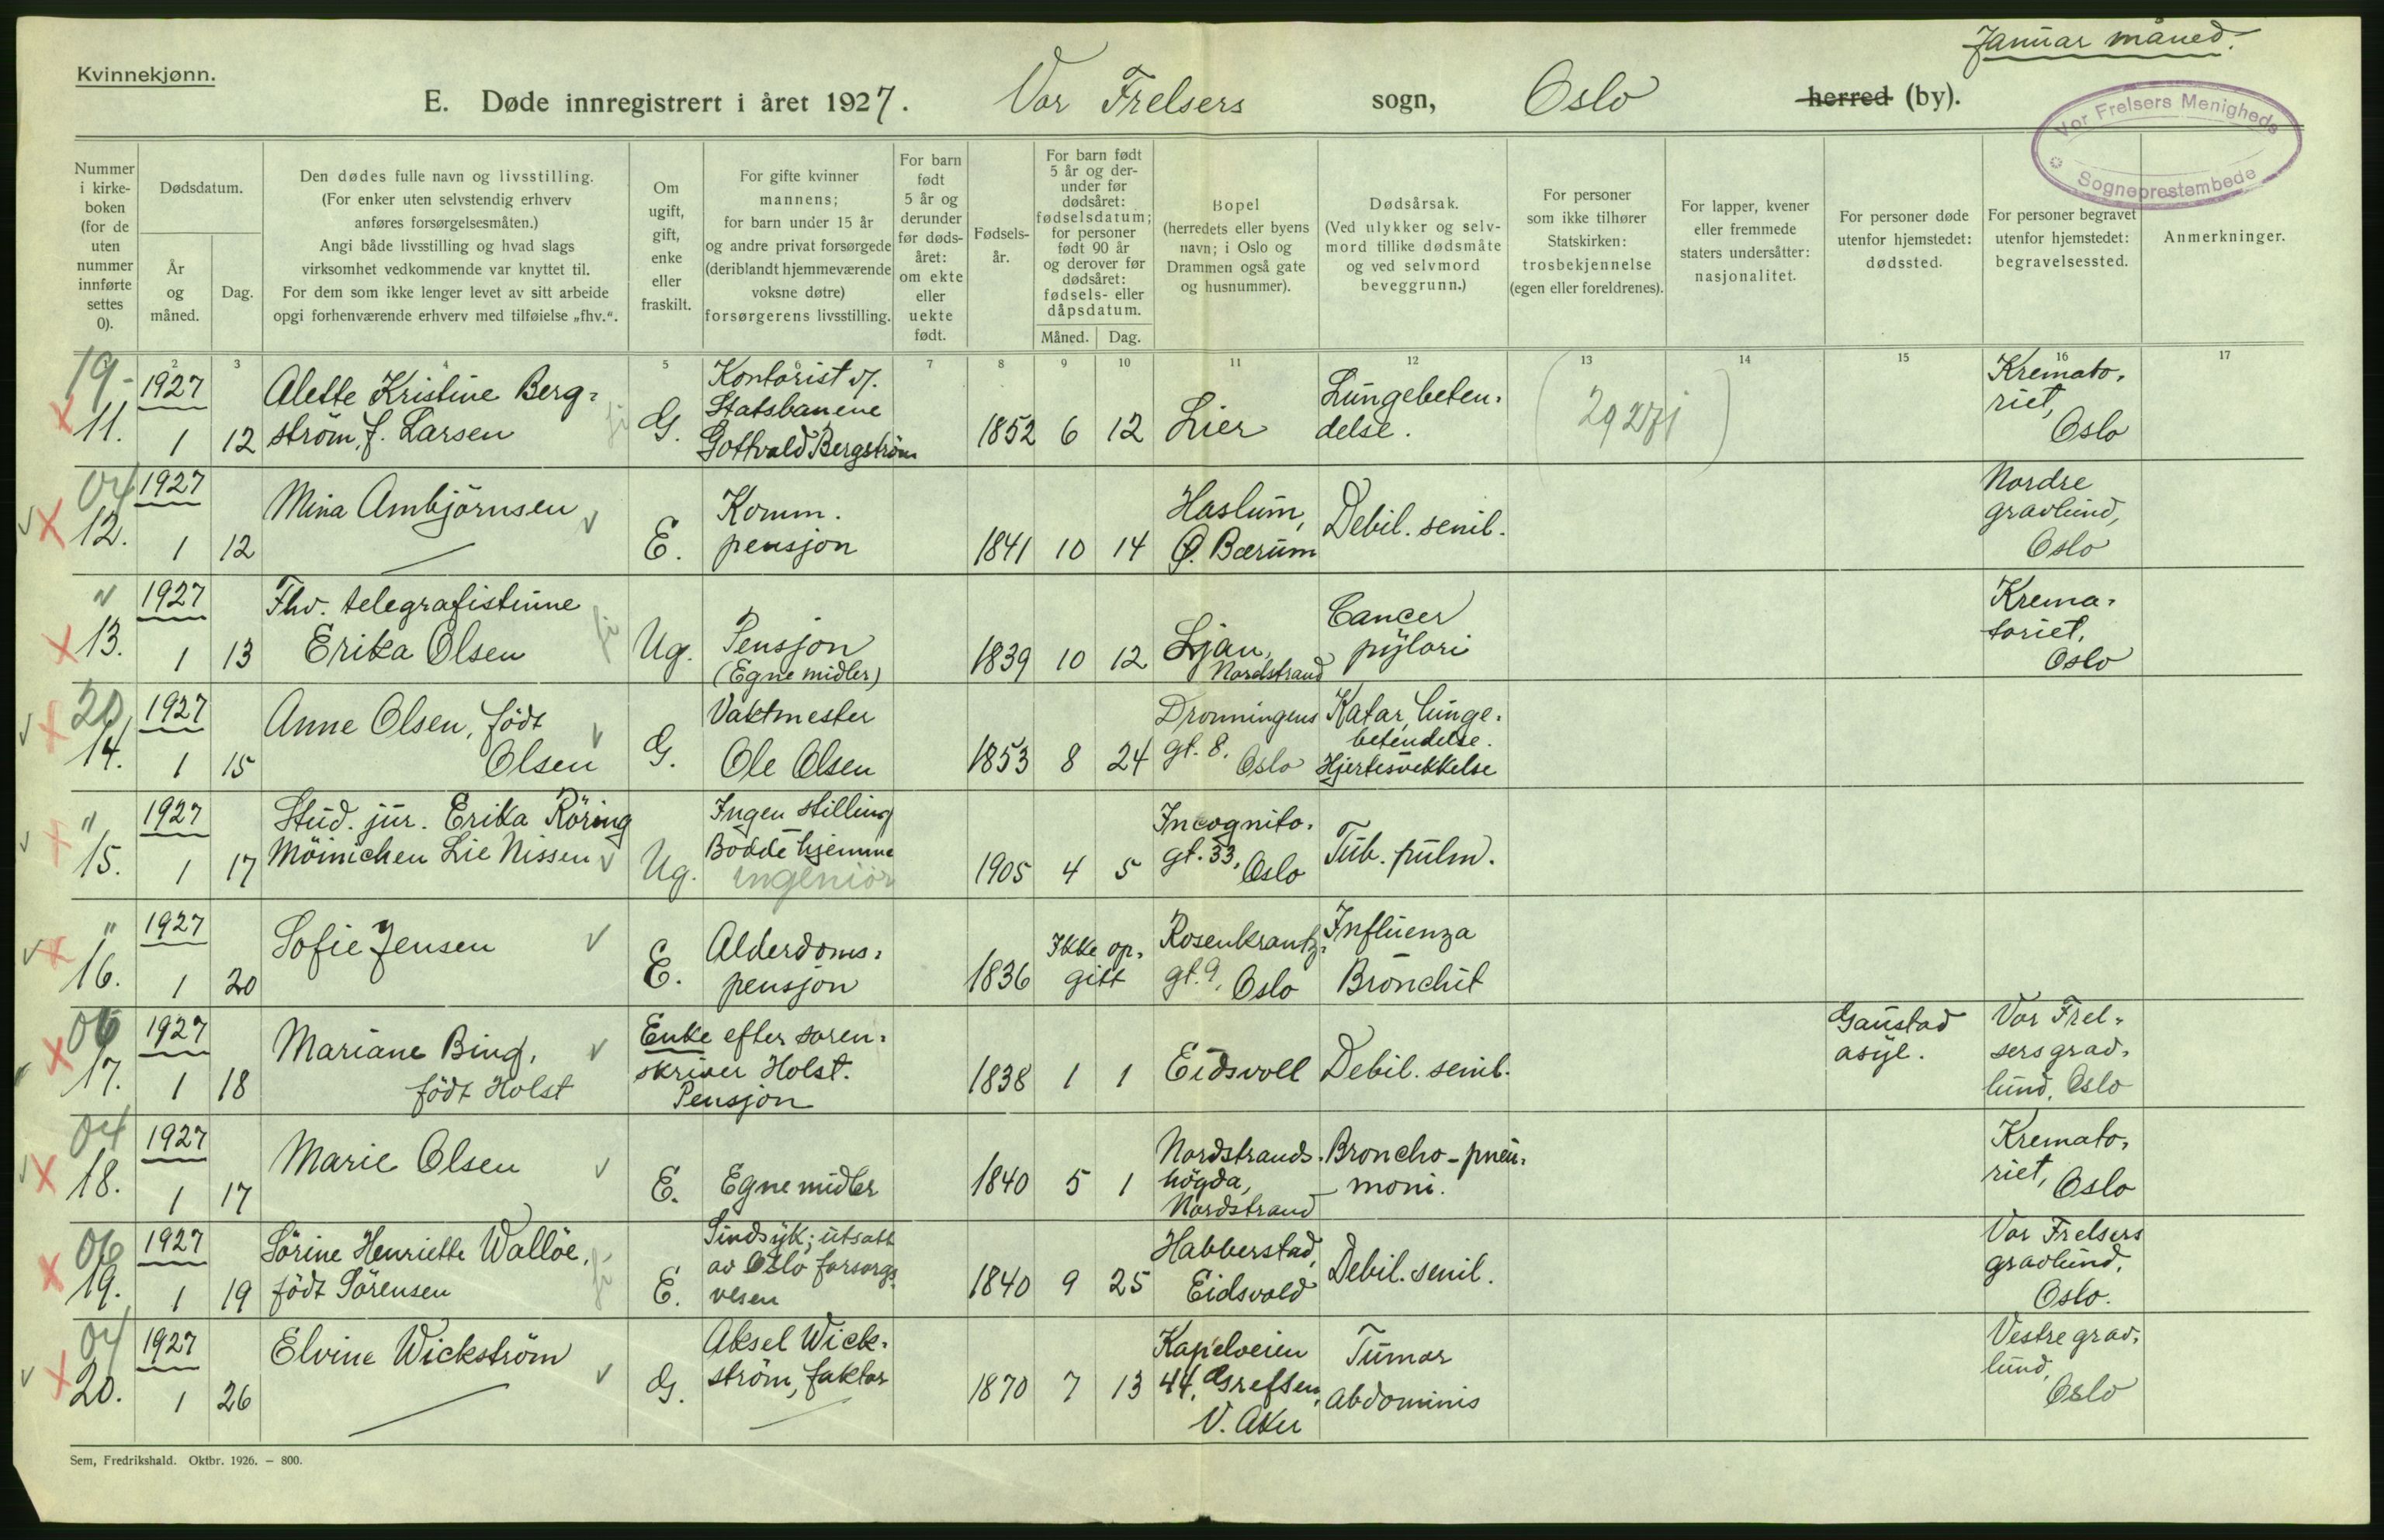 Januar måned.
Kvinnekjønn.
E. Døde innregistrert i året 1927. Vor Frelsers sogn, Oslo herred (by).
Vor Frelsers Menigheds
Sogneprestembede
Nummer i kirke-boken (for de uten nummer innførte settes 0).
Dødsdatum.
År og måned.
Dag.
Den dødes fulle navn og livsstilling.
(For enker uten selvstendig erhverv
anføres forsørgelsesmåten.)
Angi både livsstilling og hvad slags
virksomhet vedkommende var knyttet til.
For dem som ikke lenger levet av sitt arbeide
opgi forhenværende erhverv med tilføielse „fhv.“.
Om ugift, gift, enke eller fraskilt.
For gifte kvinner
mannens;
for barn under 15 år
og andre privat forsørgede
(deriblandt hjemmeværende
voksne døtre)
forsørgerens livsstilling.
For barn født 5 år og derunder før døds-året: om ekte eller uekte født.
Fødsels-år.
For barn født
5 år og der-
under før
dødsåret:
fødselsdatum;
for personer
født 90 år
og derover før
dødsåret:
fødsels- eller
dåpsdatum.
Måned. Dag.
Bopel
(herredets eller byens
navn; i Oslo og
Drammen også gate
og husnummer).
Dødsårsak.
(Ved ulykker og selv-
mord tillike dødsmåte
og ved selvmord
beveggrunn.)
For personer
som ikke tilhører
Statskirken:
trosbekjennelse
(egen eller foreldrenes).
For lapper, kvener
eller fremmede
staters undersåtter:
nasjonalitet.
For personer døde
utenfor hjemstedet:
dødssted.
For personer begravet
utenfor hjemstedet:
begravelsessted.
Anmerkninger.
2 3 4 5 7 8 9 10 11 12 13 14 15 16 17
19-
11. 1927 1 12 Alette Kristine Berg=
ström, f. Larsen G. Kontorist v.
Statsbanene
Gottvald Bergström 1852 6 12 Lier Lungebeten=
delse. Kremato=
riet,
Oslo
04
12. 1927 1 12 Mina Ambjörnsen E. Komm.
pensjon 1841 10 14 Haslum,
Ø. Bærum Debil. senil. Nordre
gravlund,
Oslo
"
13. 1927 1 13 Fhv. telegrafistinne
Erika Olsen Ug. Pensjon
(Egne midler) 1839 10 12 Ljan,
Nordstrand Cancer
pylori Krema=
toriet,
Oslo
20
14. 1927 1 15 Anne Olsen, födt
Olsen G. Vaktmester
Ole Olsen 1853 8 24 Dronningens
gt. 8. Oslo Katar, lunge=
betendelse.
Hjertesvekkelse
"
15. 1927 1 17 Stud. jur. Erika Röring
Möinichen Lie Nissen Ug. Ingen stilling
Bodde hjemme
ingeniör 1905 4 5 Incognito=
gt. 33, Oslo Tub. pulm.
"
16. 1927 1 20 Sofie Jensen E. Alderdoms=
pensjon 1836 Ikke op=
gitt Rosenkrantz=
gt. 9, Oslo Influenza
Bronchit
06
17. 1927 1 18 Mariane Bing,
födt Holst Enke efter soren=
skriver Holst.
Pensjon 1838 1 1 Eidsvoll Debil. senil. Gaustad
asyl. Vor Frel=
sers grav=
lund, Oslo
04
18. 1927 1 17 Marie Olsen E. Egne midler 1840 5 1 Nordstrands=
högda,
Nordstrand Broncho-pneu=
moni. Kremato=
riet, Oslo
06
19. 1927 1 19 Sörine Henriette Wallöe,
födt Sörensen E. Sindsyk; utsatt
av Oslo forsorgs
vesen 1840 9 25 Habberstad,
Eidsvold Debil. senil. Vor Frelsers
gravlund,
Oslo.
04
20. 1927 1 26 Elvine Wickström G. Aksel Wick=
ström, faktor 1870 7 13 Kapelveien
44, Grefsen,
V. Aker Tumor
abdominis Vestre grav=
lund,
Oslo
Sem, Fredrikshald. Oktbr. 1926. – 800.